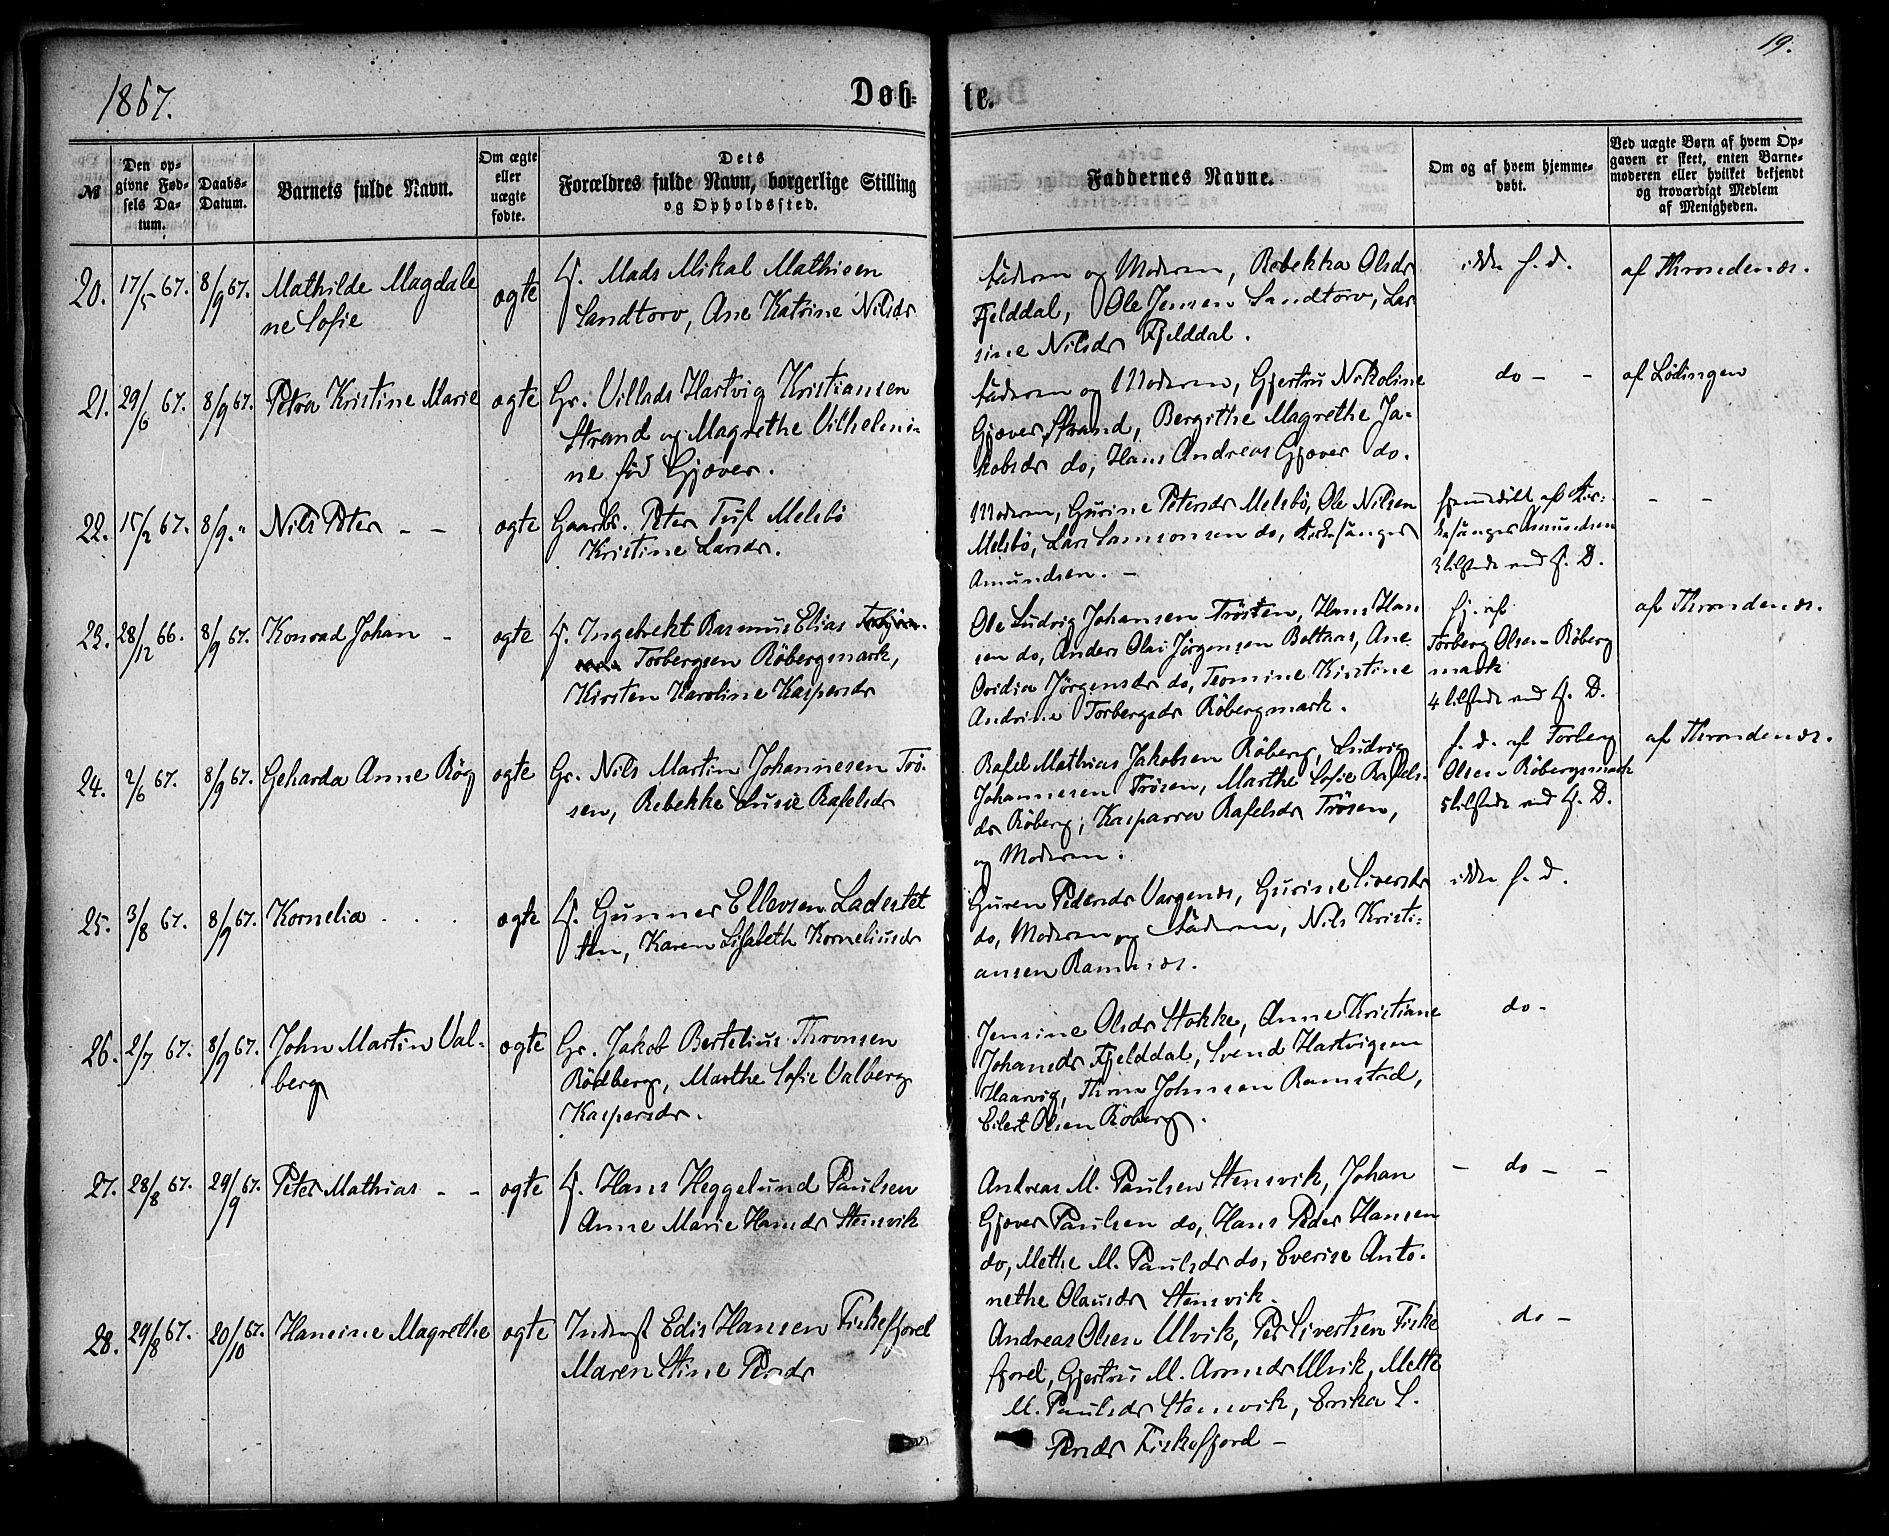 19.
1867.
Døb-
te.
№
Den opgivne Fødsels Datum.
Daabs-Datum.
Barnets fulde Navn.
Om ægte eller uægte fødte.
Dets Forældres fulde Navn, borgerlige Stilling og Opholdssted.
Faddernes Navne.
Om og af hvem hjemmedøbt.
Ved uægte Børn af hvem Opgaven er skeet, enten Barnemoderen eller hvilket bekjendt og troværdigt Medlem af Menigheden.
20. 17/5 67. 8/9 67. Mathilde Magdale
ne Sofie
ægte
Mads Mikal Mathisen
Sandtorv, Ane Katrine Nilsdr
Faderen og Moderen, Rebekka Olsdr
Fjelddal, Ole Jensen Sandtorv, Lar
sine Nilsdr Fjelddal.
ikke h. d.
af Throndenæs.
21. 29/6 67. 8/9 67. Petra Kristine Marie
ægte
Gr. Villads Hartvig Kristiansen
Strand og Magrethe Vilhelmi-
ne fød Gjæver.
Faderen og Moderen, Gjertru Nikoline
Gjæver Strand, Bergithe Magrethe Ja-
kobsdr do, Hans Andreas Gjæver do.
do - -
af Lødingen
22. 15/2 67. 8/9 " Nils Peter - -
ægte
Gaardbr. Peter Tusl Melsbö
Kristine Larsdr.
Moderen, Gurine Petersdr Melsbö, Ole Nilsen
Melsbö, Lars Samsonsen do, Kirkesanger
Amundsen. -
hjemmedöbt af Kir-
kesanger Amundsen
3 tilstede ved H. D.
- -
23. 28/12 66. 8/9 67. Konrad Johan -
ægte
Ingebrekt Rasmus Elias
Torbergsen Röbergmark,
Kirsten Karoline Kaspersdr
Ole Ludvig Johansen Trösten, Hans Han
sen do, Anders Olai Jörgensen Boltaas, Ane
Ovidia Jörgensdr do, Teomine Kirstine
Andrine Torbergsdr Röbergmark.
hj. af
Torberg Olsen Röberg
mark
4 tilstede ved H. D.
af Throndenæs.
24. 2/6 67. 8/9 67. Geharda Anne Røg
ægte
Gr. Nils Martin Johannesen Trö-
sen, Rebekke Lusie Rafelsdr
Rafel Mathias Jakobsen Röberg, Ludvig
Johannesen Trösen, Marthe Sofie Rafels-
dr Röberg, Kasparra Rafelsdr Trösen,
og Moderen.
h. d. af Torberg
Olsen Röbergsmark
5 tilstede ved H. D.
af Throndenæs.
25. 3/8 67. 8/9 67. Kornelia - - -
ægte
Gunner Ellevsen Ladestet
ten, Karen Lisabeth Korneliusdr
Guren Pedersdr Vargenæs, Gurine Siversdr
do, Moderen og Faderen, Nils Kristi-
ansen Ramnæs.
ikke h. d.
26. 2/7 67. 8/9 67. John Martin Val-
berg
ægte
Gr. Jakob Bertelius Thronsen
Rödberg, Marthe Sofie Valberg
Kaspersdr.
Jensine Olsdr Stokke, Anne Kristiane
Johansdr Fjelddal, Svend Hartvigsen
Haarvig, Thron Johnsen Ramstad,
Eilert Olsen Röberg.
do -
27. 28/8 67. 29/9 67. Peter Mathias - -
ægte
Hans Heggelund Paulsen
Anne Marie Hansdr Stensvik
Andreas M. Paulsen Stensvik, Johan
Gjæver Paulsen do, Hans Peder Hansen
do, Methe M. Paulsdr do, Everise Anto-
nethe Olausdr Stensvik.
- do - -
28. 29/8 67. 20/10 67. Hansine Magrethe
ægte
Inderst Edis Hansen Fiskefjord
Maren Stine Persdr
Andreas Olsen Ulvik, Per Sivertsen Fiske
fjord, Gjertru M. Arnsdr Ulvik, Mette
M. Paulsdr Stensvik, Erika L.
Persdr Fiskefjord -
do -